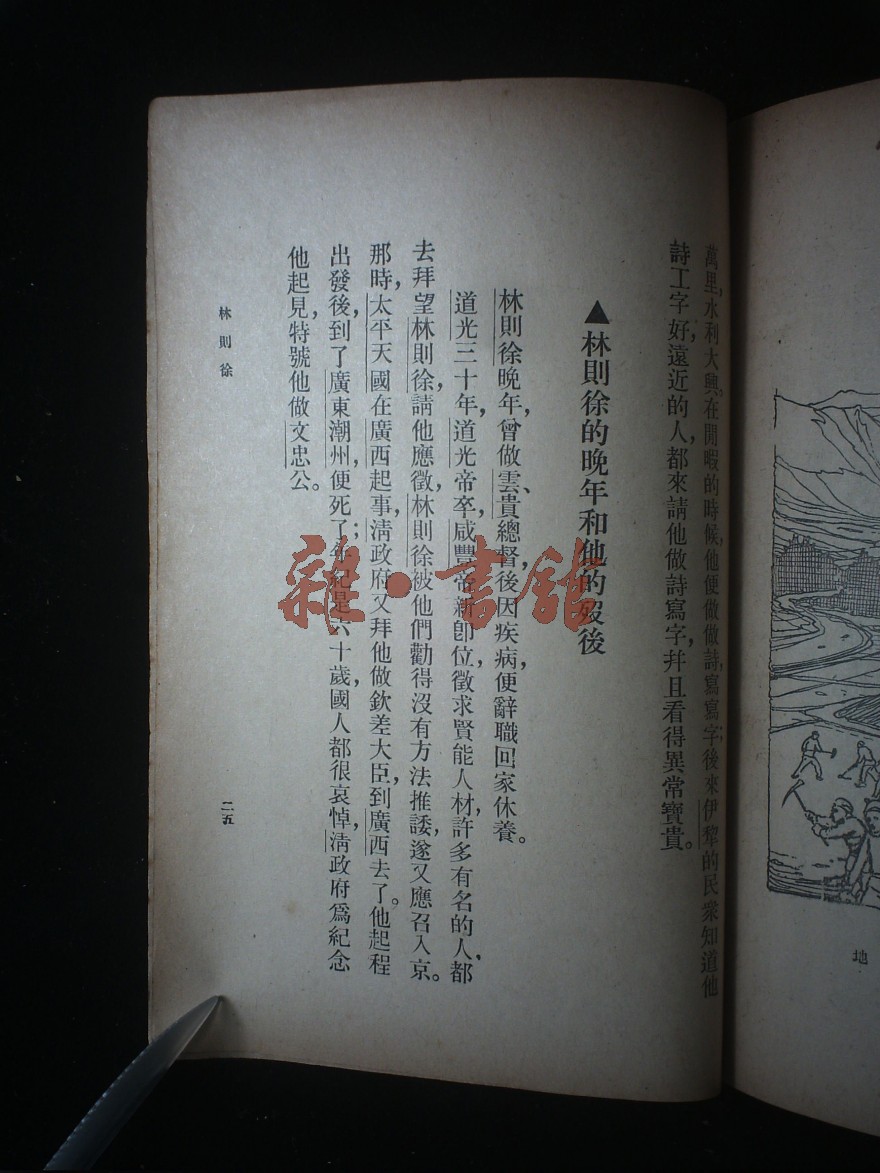 萬里，水利大興。在閒暇的時候，他便做做詩，寫寫字；後來伊犂的民衆知道他
詩工字好，遠近的人，都來請他做詩寫字，幷且看得異常寶貴。
▲林則徐的晚年和他的歿後
林則徐晚年，曾做雲、貴總督，後因疾病，便辭職回家休養。
道光三十年，道光帝卒，咸豐帝新卽位，徵求賢能人材，許多有名的人，都
去拜望林則徐，請他應徵，林則徐被他們勸得沒有方法推諉，遂又應召入京。
那時，太平天國在廣西起事，淸政府又拜他做欽差大臣，到廣西去了。他起程
出發後，到了廣東潮州，便死了；年紀是六十歲，國人都很哀悼，淸政府爲紀念
他起見，特號他做文忠公。
林則徐
二五
地
雜·書館